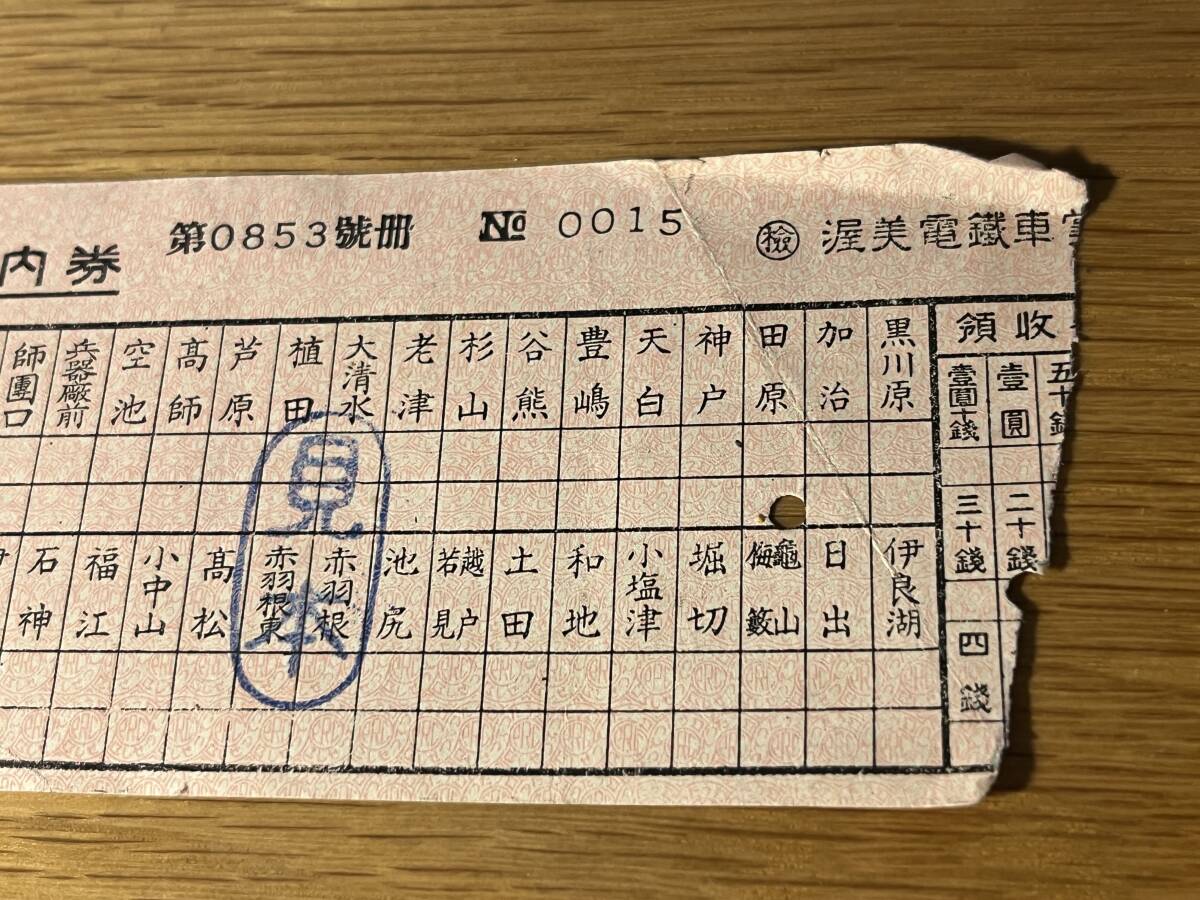 内券
第0853號册
№ 0015
㊬ 渥美電鐵車
師團口
兵器廠前
空池
髙師
芦原
植田
大清水
老津
杉山
谷熊
豊嶋
天白
神戸
田原
加治
黒川原
領收
壹圓十錢
壹圓
五十錢
三十錢
二十錢
四錢
石神
福江
小中山
髙松
赤羽根東
赤羽根
池尻
越戸
若見
土田
和地
小塩津
堀切
龜山
日出
伊良湖
見本